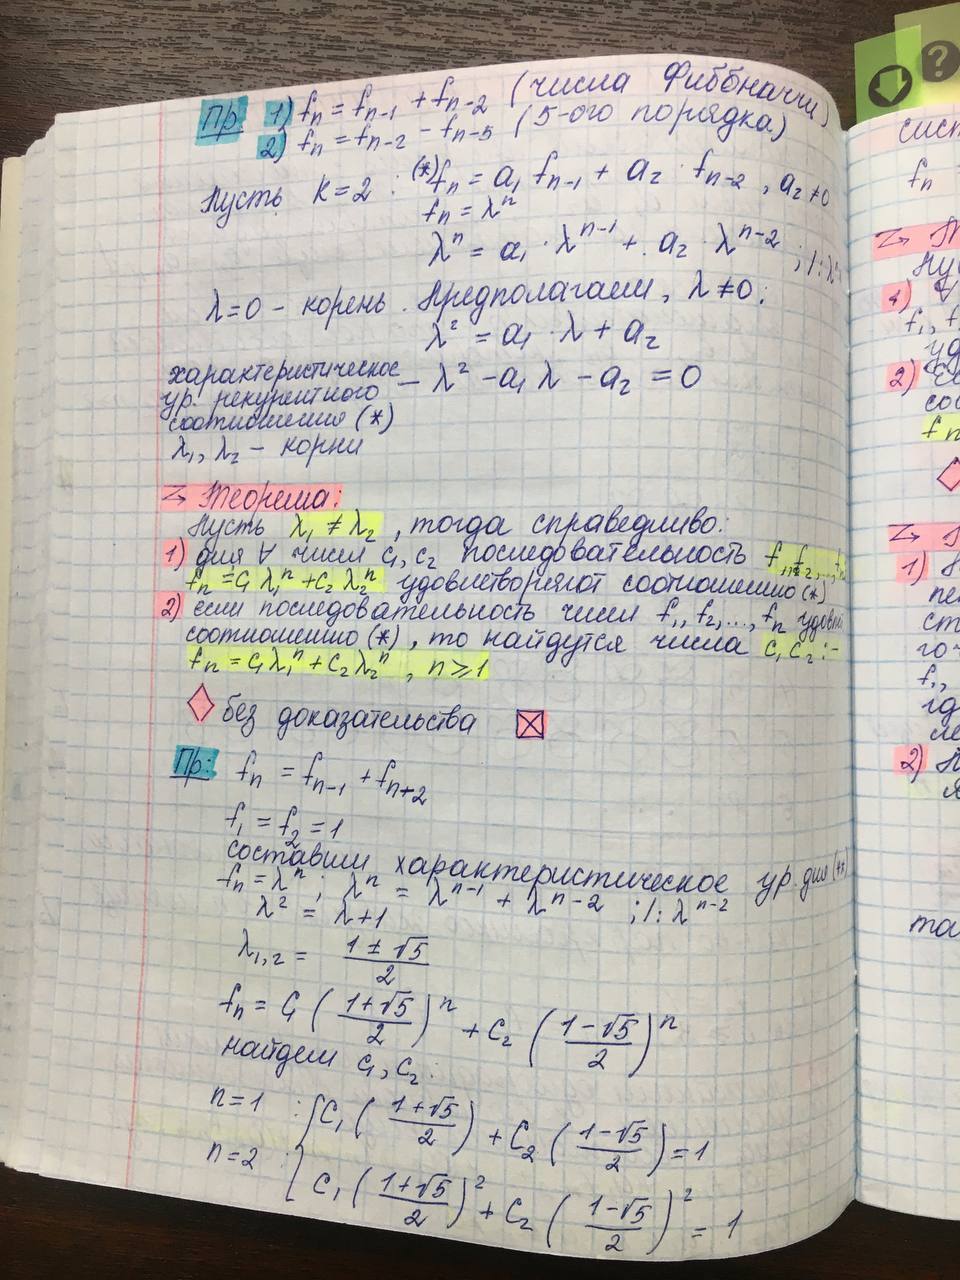 Пр 1) fₙ = fₙ₋₁ + fₙ₋₂ (числа Фиббначчи)
2) fₙ = fₙ₋₂ − fₙ₋₅ (5-ого порядка)
Пусть k = 2 : (*) fₙ = a₁ fₙ₋₁ + a₂ · fₙ₋₂ , a₂ ≠ 0
fₙ = λⁿ
λⁿ = a₁ · λⁿ⁻¹ + a₂ · λⁿ⁻² ; /: λ
λ = 0 – корень. Предполагаем, λ ≠ 0 :
λ² = a₁ · λ + a₂
характеристическое — λ² − a₁ λ − a₂ = 0
ур. рекурентного
соотношения (*)
λ₁, λ₂ – корни
Теорема:
Пусть λ₁ ≠ λ₂ , тогда справедливо:
1) для ∀ чисел C₁, C₂ последовательность f₁, f₂, ..., fₙ
fₙ = C₁ λ₁ⁿ + C₂ λ₂ⁿ удовлетворяют соотношению (*)
2) если последовательность чисел f₁, f₂, ..., fₙ удовл
соотношению (*) , то найдутся числа C₁ C₂ : –
fₙ = C₁ λ₁ⁿ + C₂ λ₂ⁿ , n ⩾ 1
без доказательства
Пр: fₙ = fₙ₋₁ + fₙ₊₂
f₁ = f₂ = 1
составим характеристическое ур. для (**)
fₙ = λⁿ ; λⁿ = λⁿ⁻¹ + λⁿ⁻² ; /: λⁿ⁻²
λ² = λ + 1
λ₁,₂ = (1 ± √5)/2
fₙ = C₁ ((1+√5)/2)ⁿ + C₂ ((1−√5)/2)ⁿ
найдем C₁, C₂ :
n = 1 : { C₁ ((1+√5)/2) + C₂ ((1−√5)/2) = 1
n = 2 : C₁ ((1+√5)/2)² + C₂ ((1−√5)/2)² = 1
?
сист
fₙ
1) ∀
f₁, f
2)
со
fₙ
1)
пе
ст
го
f₁,
гд
ле
2)
та